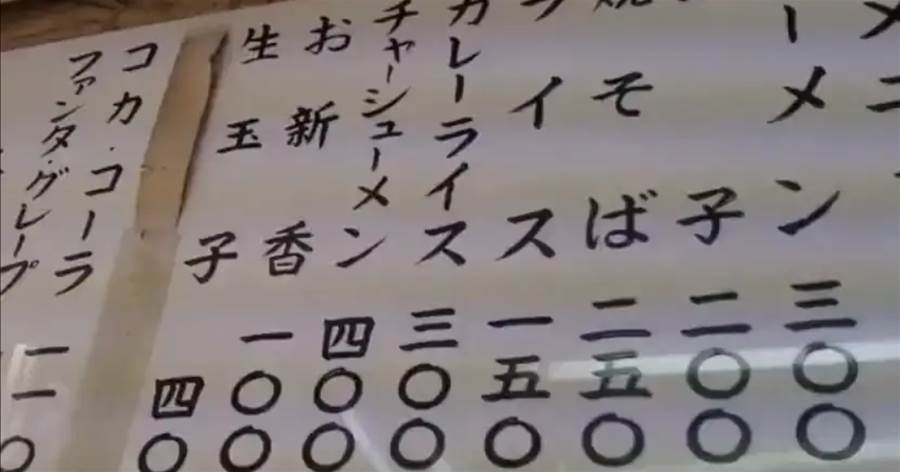 メニ
ーメン 三〇〇
子 二〇〇
焼そば 二五〇
ライス 一五〇
カレーライス 三〇〇
チャーシューメン 四〇〇
お新香 一〇〇
生玉子 四〇
コカ・コーラ 一一〇
ファンタ・グレープ